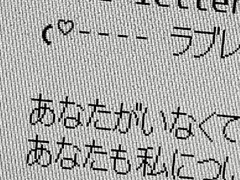 letter
(♡---- ラブレ
あなたがいなくて
あなたも私につい